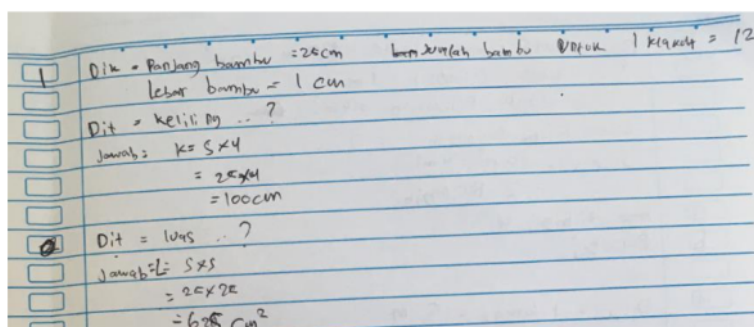 1 Dik = Panjang bambu = 25cm jumlah bambu untuk 1 klakah = 12
lebar bambu = 1 cm
Dit = keliling ..?
Jawab = K = S x 4
= 25 x 4
= 100 cm
2 Dit = luas ..?
Jawab = L = S x S
= 25 x 25
= 625 cm²